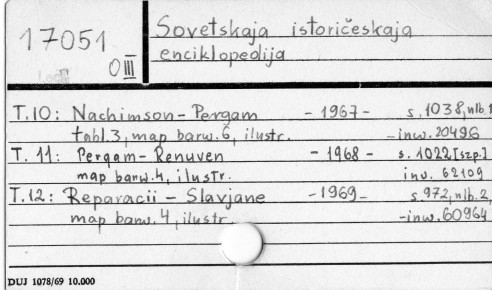 17051
O III
Sovetskaja istoričeskaja
enciklopedija
T.10: Nachimson - Pergam - 1967 - s. 1038, nlb. 1
tabl. 3, map barw. 6, ilustr. - inw. 20496
T. 11: Pergam - Renuven - 1968 - s. 1022 [szp.]
map barw. 4, ilustr. inw. 62109
T.12: Reparacii - Slavjane - 1969 - s. 972, nlb. 2,
map barw. 4, ilustr. - inw. 60964
DUJ 1078/69 10.000